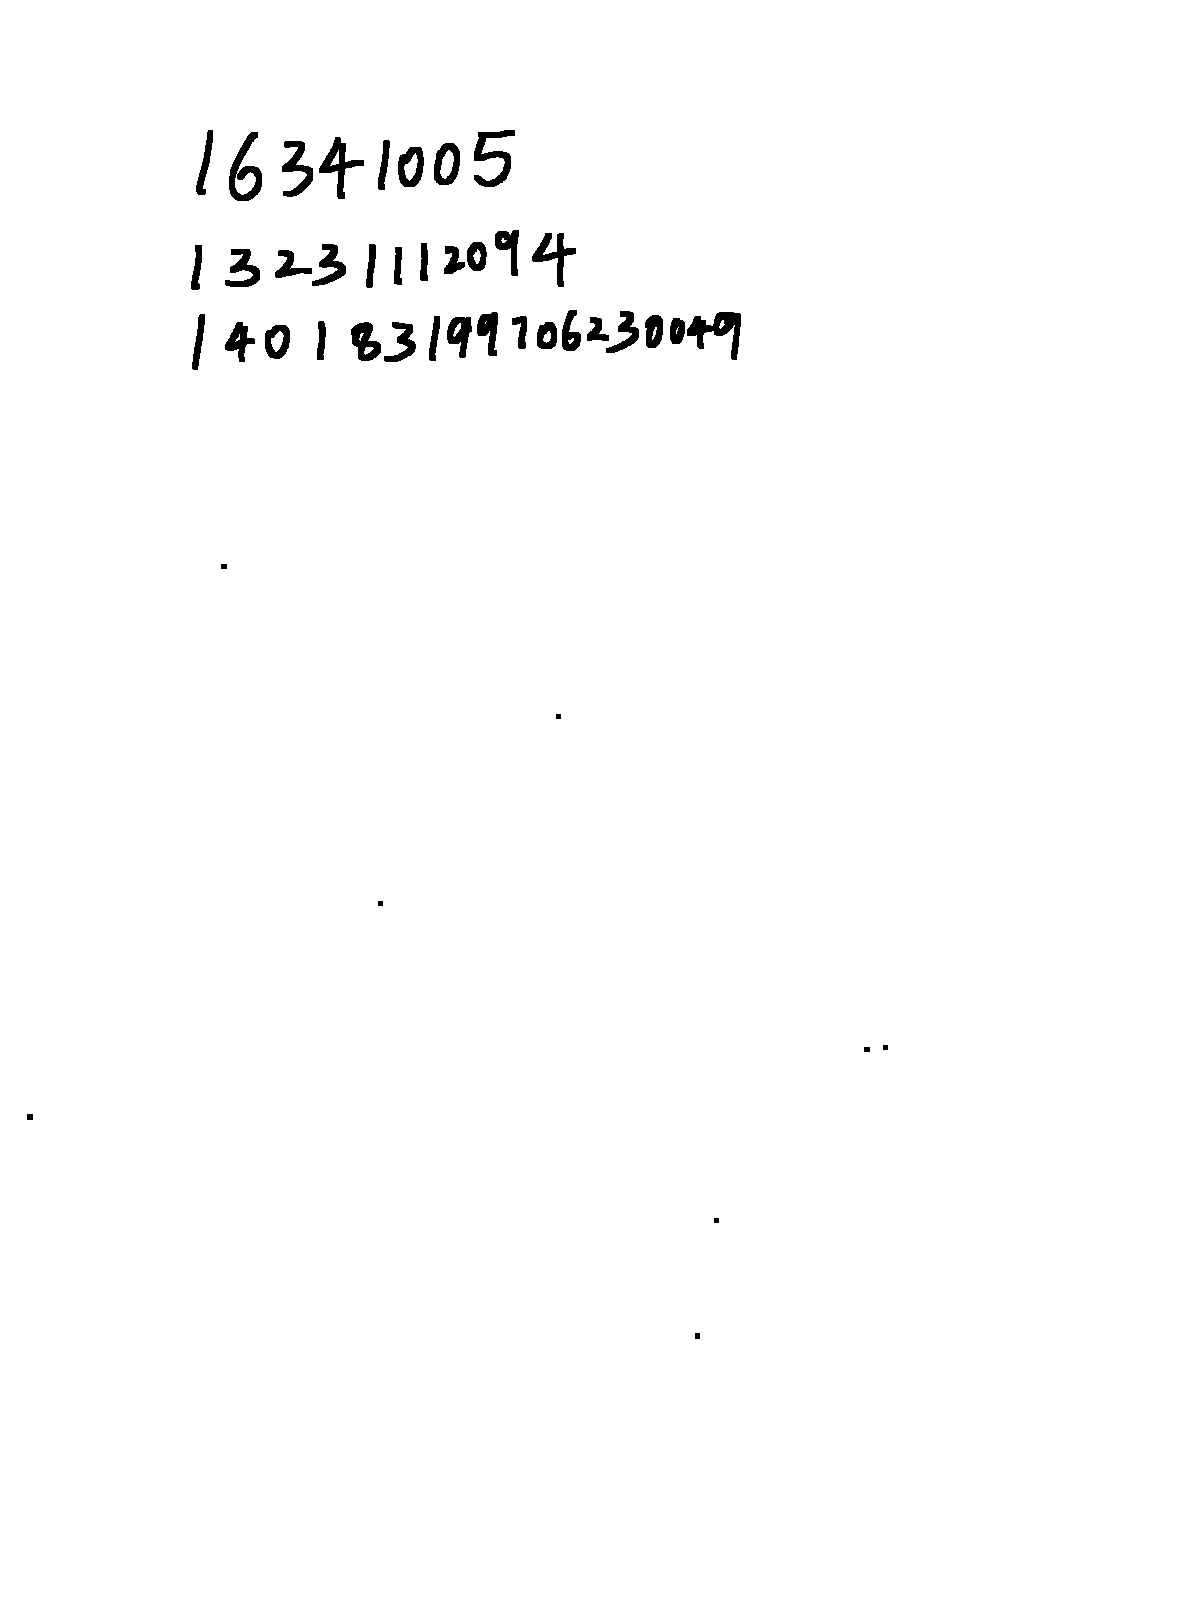 16341005
13231112094
140183199706230049